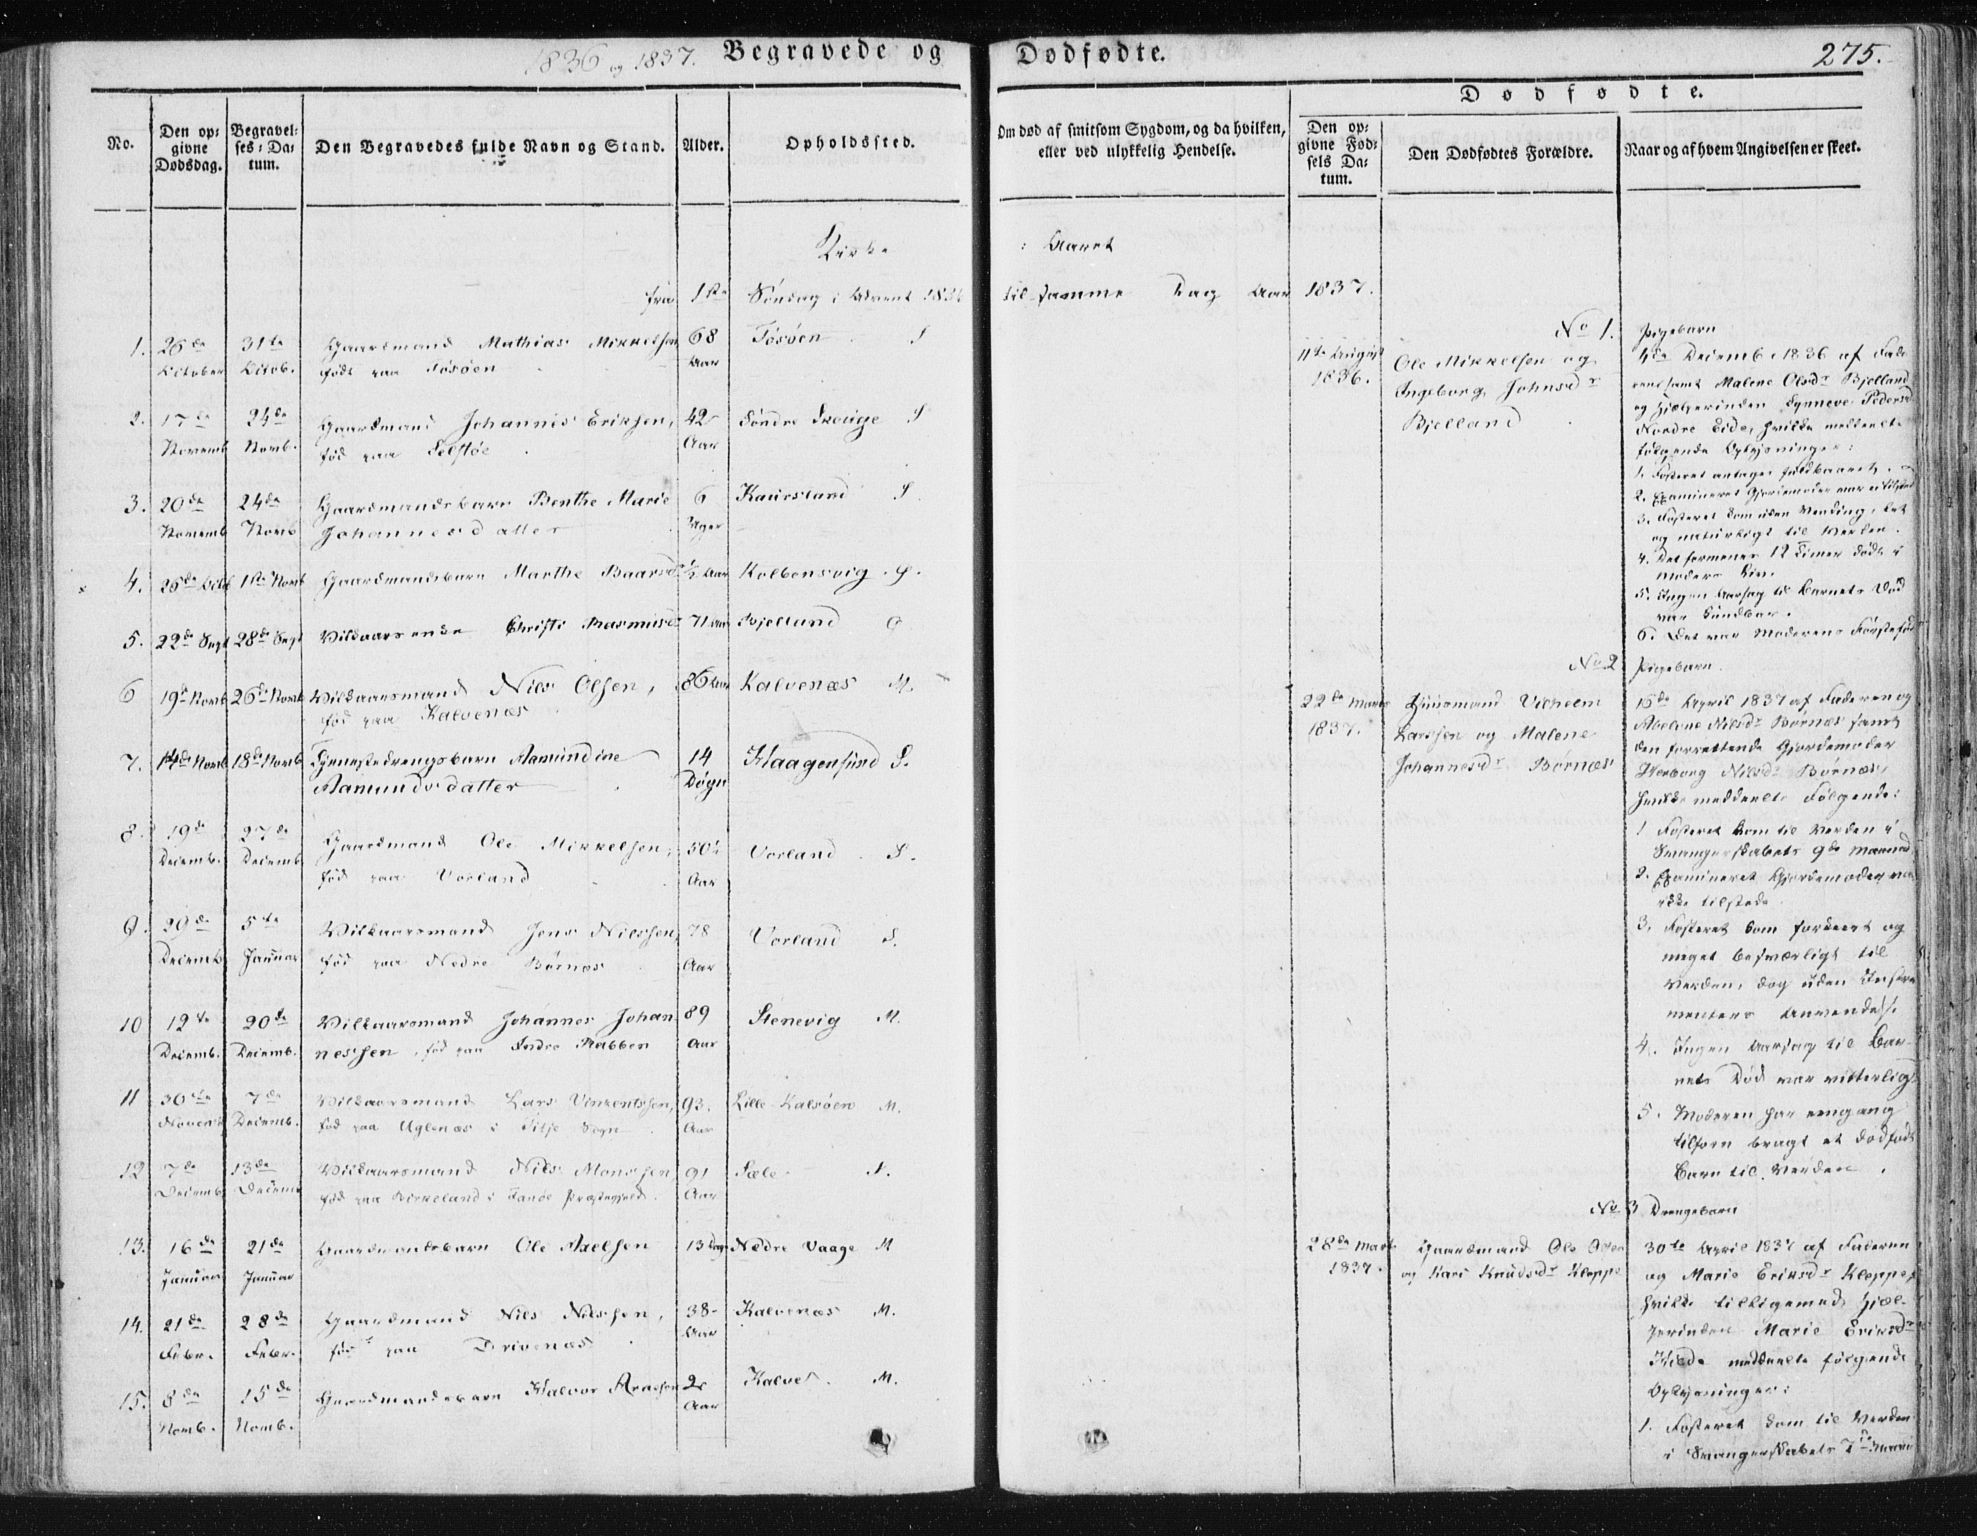 1836 og 1837. Begravede og Dødfødte. 275.
No.
Den opgivne Dødsdag.
Begravelses-Datum.
Den Begravedes fulde Navn og Stand.
Alder.
Opholdssted.
Om død af smitsom Sygdom, og da hvilken, eller ved ulykkelig Hendelse.
Dødfødte.
Den opgivne Fødsels Datum.
Den Dødfødtes Forældre.
Naar og af hvem Angivelsen er skeet.
Kirke : Aaret
fra 1ste Søndag i Advent 1836 til samme Dag Aar 1837.
1. 26de 31te Gaardmand Mathias Mikkelsen 68 Føsøen S
October Octob. født paa Føsøen Aar
2. 17de 24de Gaardmand Johannis Eriksen, 42 Søndre S
Novemb Novb. fød paa Selstøe Aar
3. 20de 24de Gaardmandsbarn Benthe Marie 6 Kaursland S.
Novemb Novb Johannesdatter Uger
4. 26de Octb 1ste Novb Gaardmandsbarn Marthe Baarsd. ½ Aar Kolbensvig
5. 22de Sept 28de Sept Vilkaarsenke Christi Rasmusd. 71 Aar Bjelland
6 19de Novb 26de Novb Vilkaarsmand Nils Olsen, 86 Aar Kalvenæs M.
fød paa Kalvenæs
7. 14de Novb 18de Novb Tjenestedrengsbarn Aamundine 14 Haagensund S.
Aamundsdatter Døgn
8. 19de 27de Gaardmand Ole Mikkelsen, 50½ Vorland S.
Decemb. Decemb fød paa Vorland Aar
9. 29de 5te Vilkaarsmand Jens Nilssen, 78 Vorland S.
Decemb Januar fød paa Nedre Børnæs Aar
10 12te 20de Vilkaarsmand Johannes Johan- 89 Stenevig M.
Decemb. Decemb. nessen, fød paa Indre Rabben Aar
11 30te 7de Vilkaarsmand Lars Vinzentssen, 93. Lille Kalsøen M.
Novemb Decemb. fød paa Uglenæs i Sogn Aar
12 7de 13de Vilkaarsmand Nils Monssen 91 Sæle
Decemb Decemb fød paa Birkeland i Fanøe Præstegjeld. Aar
13. 16de 21de Gaardmandsbarn Ole Axelsen 13 Dage Nedre Vaage M
Januar Januar
14. 21de 28de Gaardmand Nils Nilssen, 38 Kalvenæs M.
Febr. Febr. fød paa Drivenæs Aar
15. 8de 15de Gaardmandsbarn Halvor 2 Kalve M.
Novb. Novb. Aar
No 1.
11te August 1836.
Ole Mikkelsen og
Ingeborg Johnsdr
Bjelland
Pigebarn
4de Decemb. 1836 af Fade-
ren samt Malene Olsdr Bjelland
og Hjelperinden Synneve Pedersd
Nordre Eide, hvilke meddeelte
følgende Oplysninger:
1. Fosteret antages fuldbaaret.
2. Examineret Gjordemoder var ei tilstede
3. Fosteret kom uden Vending, let
og naturligt til Verden.
4. Det formenes 12 Timer dødt i
Moders Liv.
5. Ingen Aarsag til Barnets Død
var kundbar.
6. Det var Moderens Førstefød
No 2
22de Marts 1837.
Huusmand Vilhelm
Larssen og Malene
Johannesdr. Børnæs
Pigebarn.
15de April 1837 af Faderen og
Abelone Nilsdr Børnæs samt
den forrettende Gjordemoder
Herborg Nilsdr Børnæs,
hvilke meddeelte Følgende:
1 Fosteret kom til Verden i
Svangerskabets 9de Maaned
2. Examineret Gjordemoder var
ikke tilstede
3. Fosteret kom forkeert og
meget besværligt til
Verden, dog uden Instru
menters Anvendelse.
4. Ingen Aarsag til Bar-
nets Død var vitterlig
5. Moderen har eengang
tilforn bragt et dødfødt
Barn til Verden.
No 3
28de Marts 1837.
Gaardmand Ole Olsen
og Kari Knudsdr Kleppe
Drengebarn
30te April 1837 af Faderen
og Marie Eriksdr Kleppe,
hvilke tilligemed Hjæl-
perinden Marie Eriksdr
Hilde meddeelte følgende
Oplysninger:
1. Fosteret kom til Verden
i Svangerskabets 7de Maan